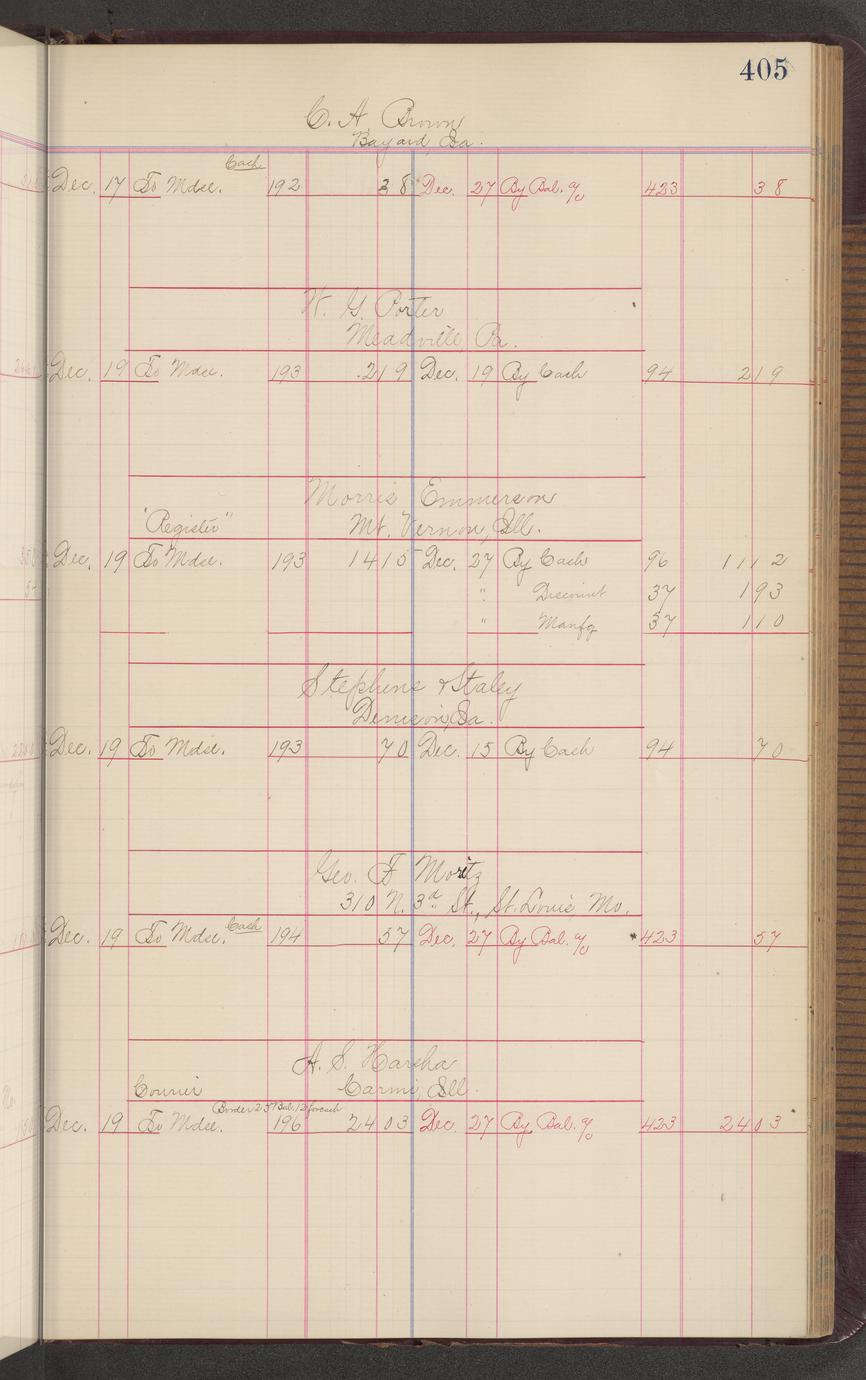 405
C. A. Brown
Bayard, Ia.
Cash
Dec. 17 To Mdse. 192 38 Dec. 27 By Bal. a/c 423 38
W. G. Porter
Meadville, Pa.
Dec. 19 To Mdse. 193 2 19 Dec. 19 By Cash 94 2 19
Morris Emmerson
"Register" Mt. Vernon, Ill.
Dec. 19 To Mdse. 193 14 15 Dec. 27 By Cash 96 11 12
" Discount 37 1 93
" Manfg 57 1 10
Stephens & Staley
Denison, Ia.
Dec. 19 To Mdse. 193 70 Dec. 15 By Cash 94 70
Geo. F Moritz
310 N. 3d St., St. Louis Mo.
Cash
Dec. 19 To Mdse. 194 57 Dec. 27 By Bal. a/c 423 57
A. S. Harsha
Courier Carmi, Ill.
Border 25 Bal. 12 for cash
Dec. 19 To Mdse. 196 24 03 Dec. 27 By Bal. a/c 423 24 03